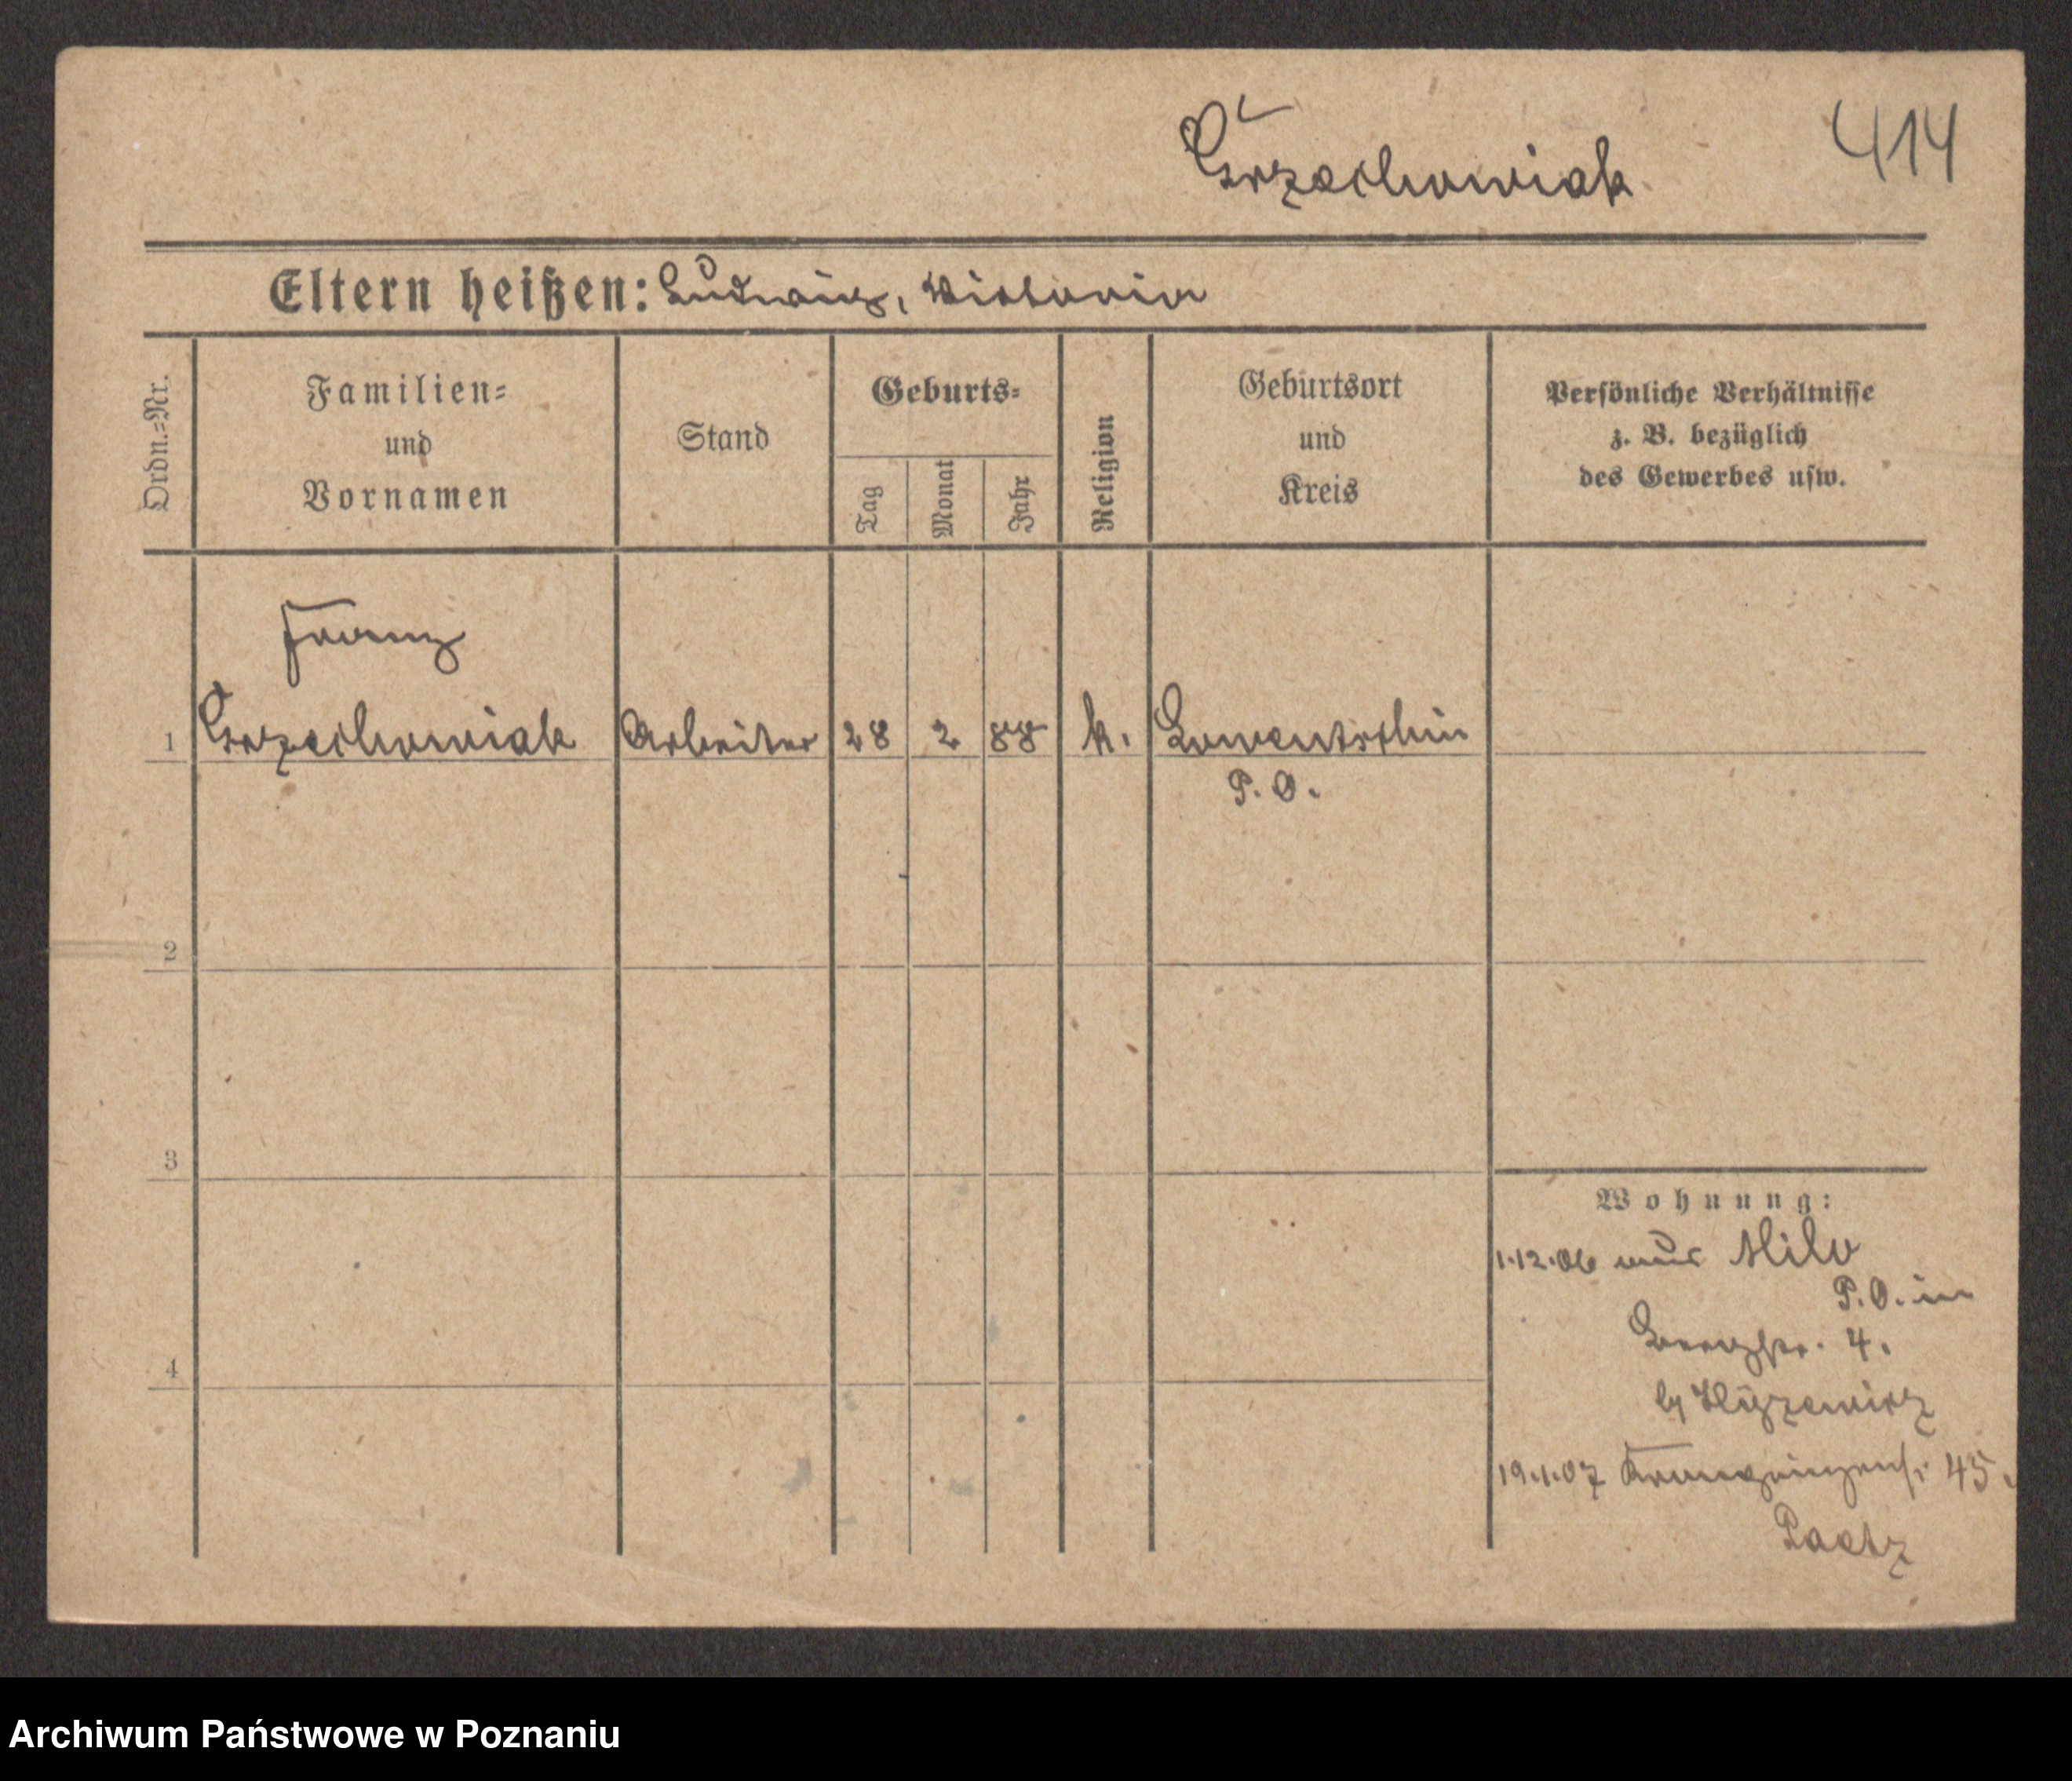 Grzechowiak
414
Eltern heißen: Ludwig, Victoria
Ordn.=Nr.
Familien=
und
Vornamen
Stand
Geburts=
Tag
Monat
Jahr
Religion
Geburtsort
und
Kreis
Persönliche Verhältnisse
z. B. bezüglich
des Gewerbes usw.
Franz
1 Grzechowiak Arbeiter 28 2 88 k. Lowentschin
P. O.
2
3
4
Wohnung:
1.12.06 aus Milo
P. O. in
4.
19.1.07 45.
Paetz
Archiwum Państwowe w Poznaniu